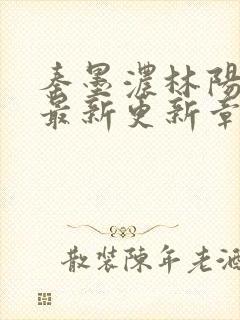 秦墨濃林陽
最新更新章
散裝陳年老酒